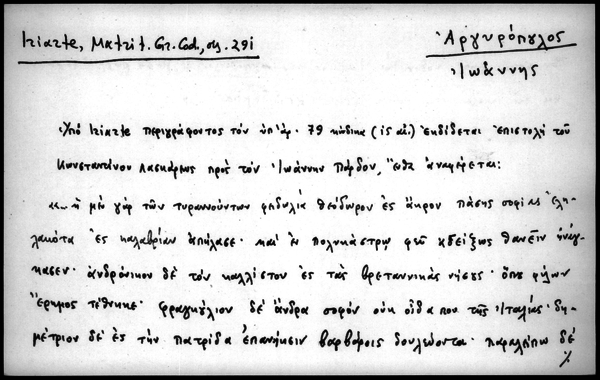 Iriarte, Matrit. Gr. Cod., σ. 291
Ἀργυρόπουλος
Ἰωάννης
Ὑπὸ Iriarte περιγράφοντος τὸν ὑπ' ἀρ. 79 κώδικα (ις αἰ.) ἐκδίδεται ἐπιστολὴ τοῦ
Κωνσταντίνου Λασκάρεως πρὸς τὸν Ἰωάννην Πάρδον, ἔνθα ἀναφέρεται:
«...ἡ μὲν γὰρ τῶν τυραννούντων φειδωλία Θεόδωρον ἐς ἄκρον πάσης σοφίας ἐλη-
λακότα ἐς Καλαβρίαν ἀπήλασε· καὶ ἐν Πολυκάστρῳ φεῦ ἀδείξως θανεῖν ἠνάγ-
κασεν· ἀνδρόνικον δὲ τὸν κάλλιστον ἐς τὰς βρεταννικὰς νήσους· ὅπου φίλων
ἔρημος τέθνηκε· φραγκούλιον δὲ ἄνδρα σοφὸν οὐκ οἶδα που τῆς Ἰταλίας· δη-
μέτριον δὲ ἐς τὴν πατρίδα ἐπανήκειν βαρβάροις δουλεύοντα· παραλείπω δὲ
%